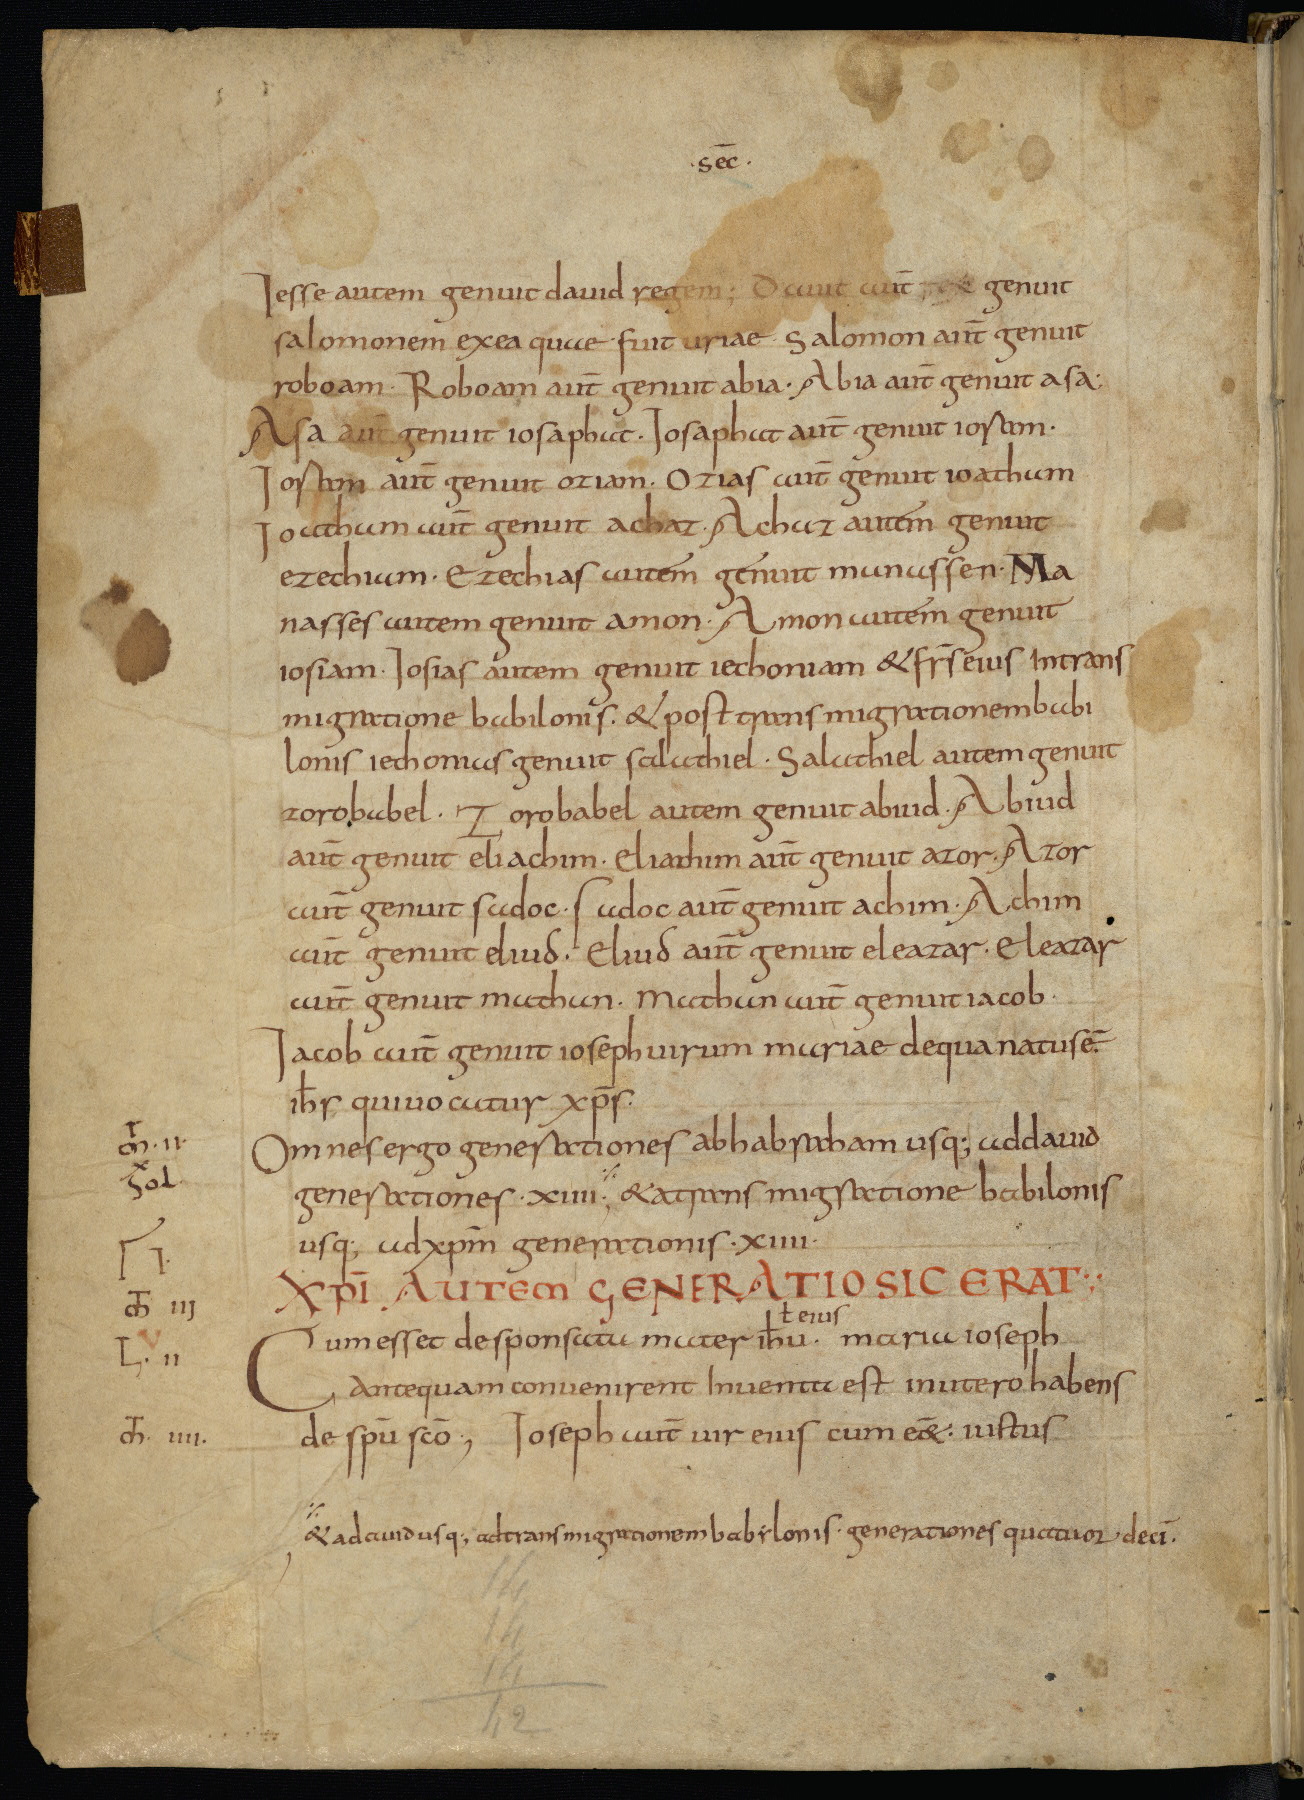 ·sēc·
Iesse autem genuit dauid regem; Dauid aut̄ rex genuit
salomonem exea quae fuit uriae· Salomon aut̄ genuit
roboam· Roboam aut̄ genuit abia· Abia aut̄ genuit asa;
Asa aut̄ genuit iosaphat· Iosaphat aut̄ genuit ioram·
Ioram aut̄ genuit oziam· Ozias aut̄ genuit ioatham
Ioatham aut̄ genuit achaz· Achaz autem genuit
ezechiam· Ezechias autem genuit manassen· Ma
nasses autem genuit amon· Amon autem genuit
iosiam· Iosias autem genuit iechoniam & fr̄s eius Intrans
migratione babilonis: & post transmigrationem babi
lonis iechonias genuit salathiel· Salathiel autem genuit
zorobabel· Zorobabel autem genuit abiud· Abiud
aut̄ genuit eliachim· Eliachim aut̄ genuit azor· Azor
aut̄ genuit sadoc· sadoc aut̄ genuit achim· Achim
aut̄ genuit eliud· Eliud aut̄ genuit eleazar· Eleazar
aut̄ genuit mathan· Mathan aut̄ genuit iacob·
Iacob aut̄ genuit ioseph uirum mariae dequa natus ē·
ih̄s qui uocatur xp̄s·
Omnes ergo generationes abhabraham usq; ad dauid
generationes ·xiiii·; & atransmigratione babilonis
usq; adxpm̄ generationis ·xiiii·
XPĪ AUTEM GENERATIO SIC ERAT:·
ł eius
Cum esset desponsata mater ih̄u· maria ioseph
antequam conuenirent Inuenta est inutero habens
de spū scō·, Ioseph aut̄ uir eius cum eē&: iustus
& adauid usq; adtransmigrationem babylonis· generationes quatuor deci̅·
·ii·
iii
ii
iiii·
14
14
14
42